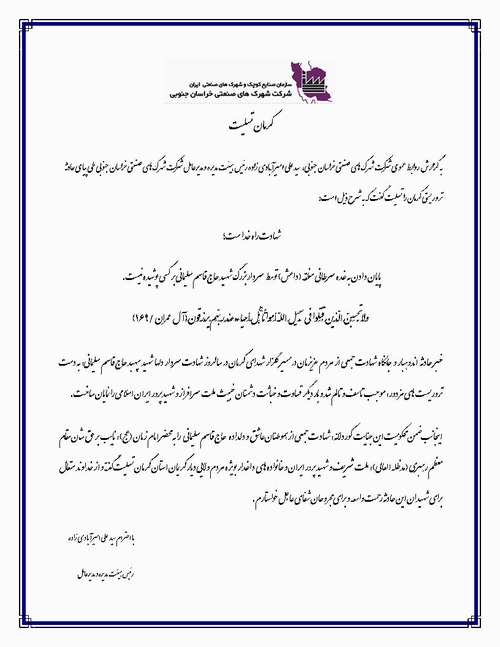 سازمان صنایع کوچک و شهرک های صنعتی ایران
شرکت شهرک های صنعتی خراسان جنوبی
کرمان تسلیت
به گزارش روابط عمومی شرکت شهرک های صنعتی خراسان جنوبی، سید علی امیرآبادی زاده رئیس هیئت مدیره و مدیرعامل شرکت شهرک های صنعتی خراسان جنوبی طی پیامی حادثه
تروریستی کرمان را تسلیت گفت که به شرح ذیل است:
شهادت راه خداست؛
پایان دادن به غده سرطانی منطقه (داعش) توسط سردار بزرگ شهید حاج قاسم سلیمانی بر کسی پوشیده نیست.
ولا تحسبن الذین قتلوا فی سبیل الله امواتا بل احیاء عند ربهم یرزقون (آل عمران /۱۶۹)
خبر حادثه اندوهبار و جانکاه شهادت جمعی از مردم عزیزمان در مسیر گلزار شهدای کرمان در سالروز شهادت سردار دلها شهید سپهبد حاج قاسم سلیمانی؛ به دست
تروریست های مزدور، موجب تاسف و تالم شد و بار دیگر قساوت و خباثت دشمنان خبیث ملت سرافراز و شهید پرور ایران اسلامی را نمایان ساخت.
اینجانب ضمن محکومیت این جنایت کوردلانه؛ شهادت جمعی از هموطنان عاشق و دلداده حاج قاسم سلیمانی را به محضر امام زمان (عج)، نایب بر حق شان مقام
معظم رهبری (مدظله العالی)، ملت شریف و شهید پرور ایران و خانواده های داغدار بویژه مردم ولایی دیار کریمان استان کرمان تسلیت گفته و از خداوند متعال
برای شهیدان این حادثه رحمت واسعه و برای مجروحان شفای عاجل خواستارم.
با احترام سید علی امیرآبادی زاده
رئیس هیئت مدیره و مدیرعامل